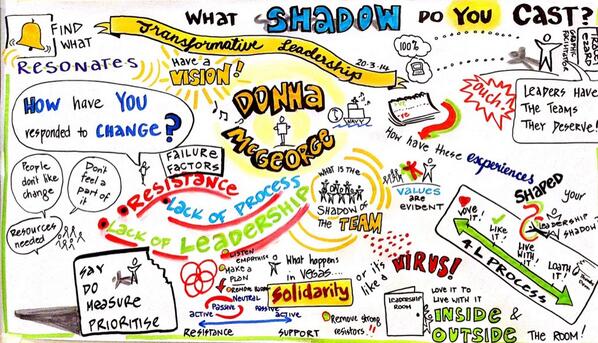 WHAT SHADOW DO YOU CAST?
Transformative Leadership
20·3·14
FIND
WHAT
RESONATES
Have a
VISION!
100%
GRAPHIC
OUCH!
LEADERS HAVE
THE TEAMS
THEY DESERVE!
DONNA
McGEORGE
HOW have YOU
responded to CHANGE?
People
don't like
change
Don't
feel a
part of
it
Resources
needed
FAILURE
FACTORS
RESISTANCE
LACK OF PROCESS
LACK OF LEADERSHIP
WHAT IS THE
SHADOW OF
THE TEAM
+ve
-ve
How have these experiences
SHAPED your
LEADERSHIP
SHADOW?
VALUES
ARE
EVIDENT
LOVE
IT!
LIKE
IT!
LIVE
WITH
IT!
LOATH
IT!
4 L PROCESS
SAY
DO
MEASURE
PRIORITISE
LISTEN
MAKE A
PLAN
NEUTRAL
PASSIVE
PASSIVE
ACTIVE
ACTIVE
RESISTANCE
SUPPORT
What happens
in VEGAS....
Solidarity
or it's
like a
VIRUS!
Remove strong
resistors!!
LEADERSHIP
ROOM
LOVE IT TO
LIVE WITH IT
INSIDE &
OUTSIDE THE ROOM!